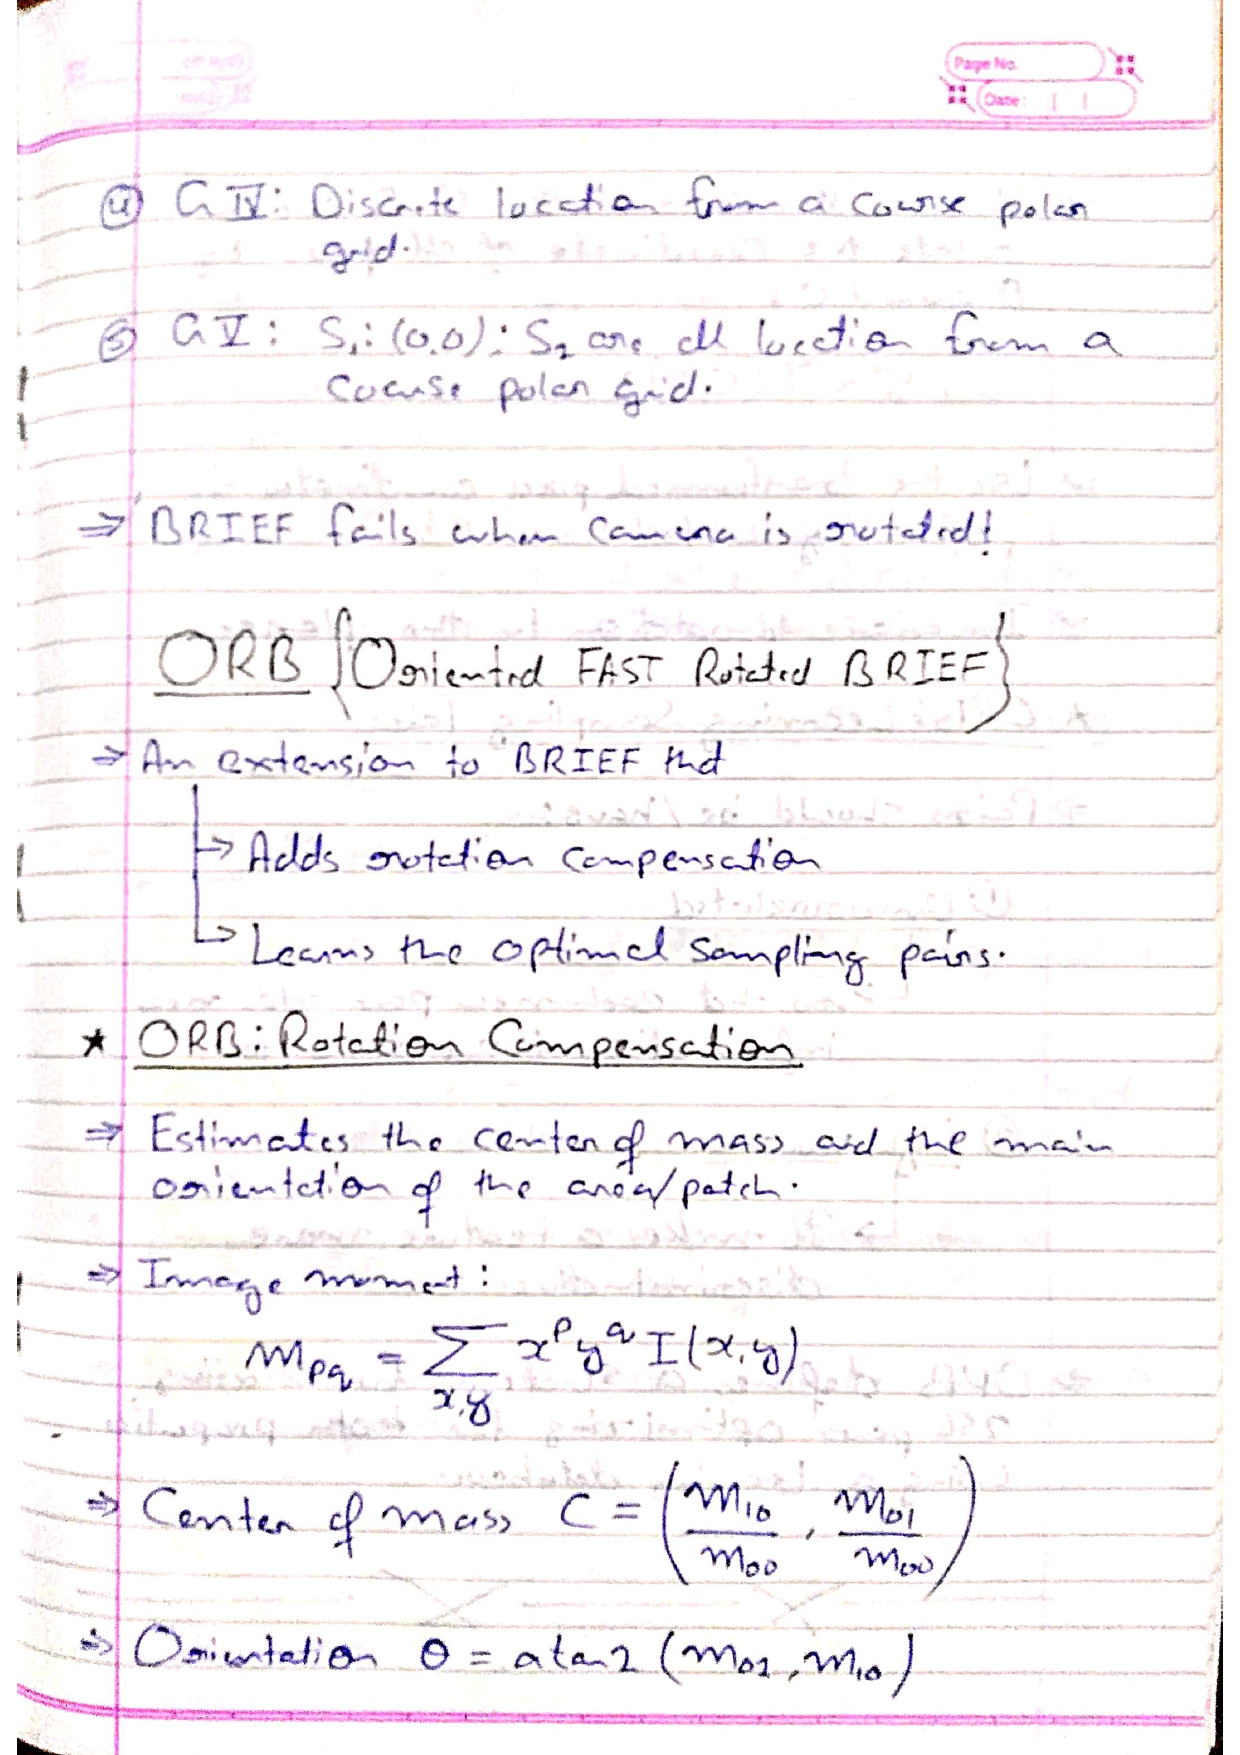 Page No.
Date: | |
④ G IV: Discrete location from a course polar
grid.
⑤ G V: S₁: (0,0): S₂ are all location from a
course polar grid.
⇒ BRIEF fails when camera is rotated!
ORB {Oriented FAST Rotated BRIEF}
⇒ An extension to BRIEF that
→ Adds rotation compensation
→ Learns the optimal sampling pairs.
★ ORB: Rotation Compensation
⇒ Estimates the center of mass and the main
orientation of the area/patch.
⇒ Image moment:
m_pq = Σ_x,y x^p y^q I(x,y)
⇒ Center of mass C = (m₁₀/m₀₀, m₀₁/m₀₀)
⇒ Orientation θ = atan2 (m₀₁, m₁₀)